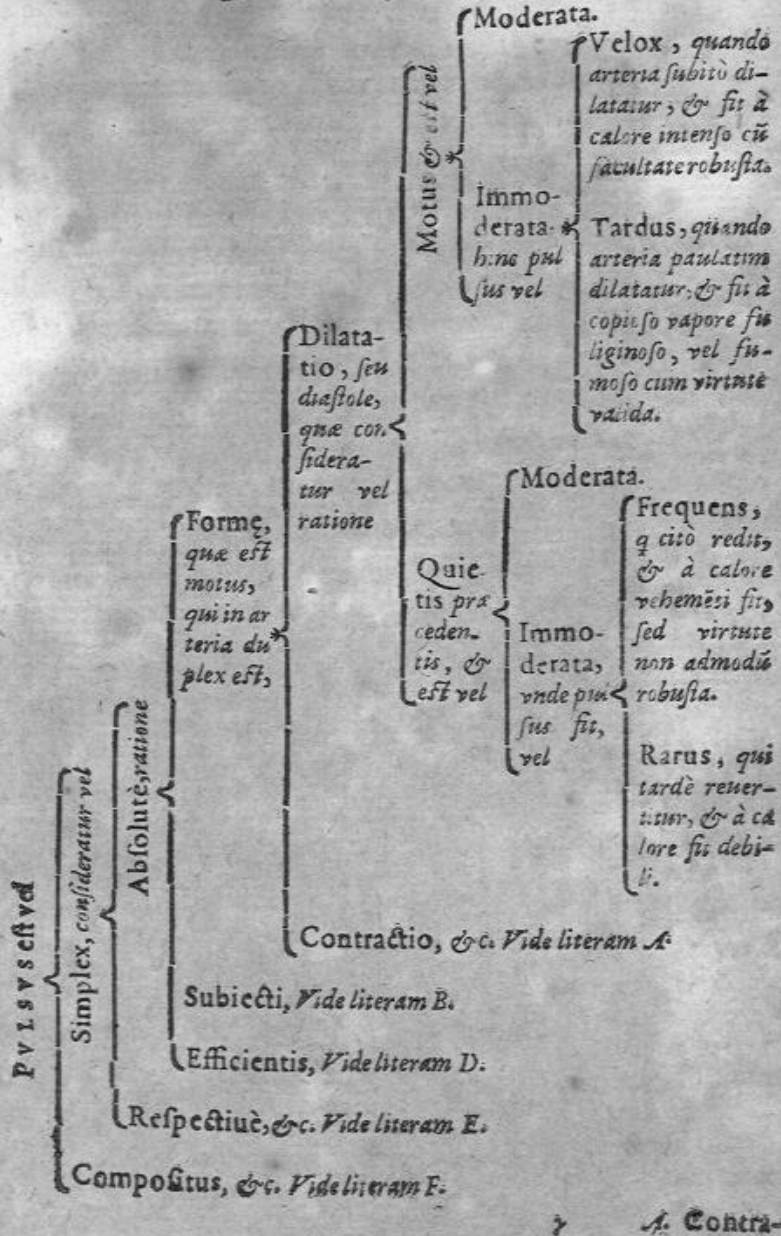 PVLSVS est vel
Simplex, consideratur vel
Absolutè, ratione
Formę,
quæ est
motus,
qui in ar
teria du
plex est,
Dilata-
tio, seu
diastole,
quæ con
sidera-
tur vel
ratione
Motus & est vel
Moderata.
Immo-
derata-
hinc pul
sus vel
Velox, quando
arteria subitò di-
latatur, & fit à
calore intenso cū
facultate robusta.
Tardus, quando
arteria paulatim
dilatatur, & fit à
copioso vapore fu
liginoso, vel fu-
moso cum virtute
valida.
Quie-
tis præ
ceden-
tis, &
est vel
Moderata.
Immo-
derata,
vnde pul
sus fit,
vel
Frequens,
q citò redit,
& à calore
vehemēti fit,
sed virtute
non admodū
robusta.
Rarus, qui
tardè reuer-
titur, & à ca
lore fit debi-
li.
Contractio, &c. Vide literam A.
Subiecti, Vide literam B.
Efficientis, Vide literam D.
Respectiuè, &c. Vide literam E.
Compositus, &c. Vide literam F.
A. Contra-